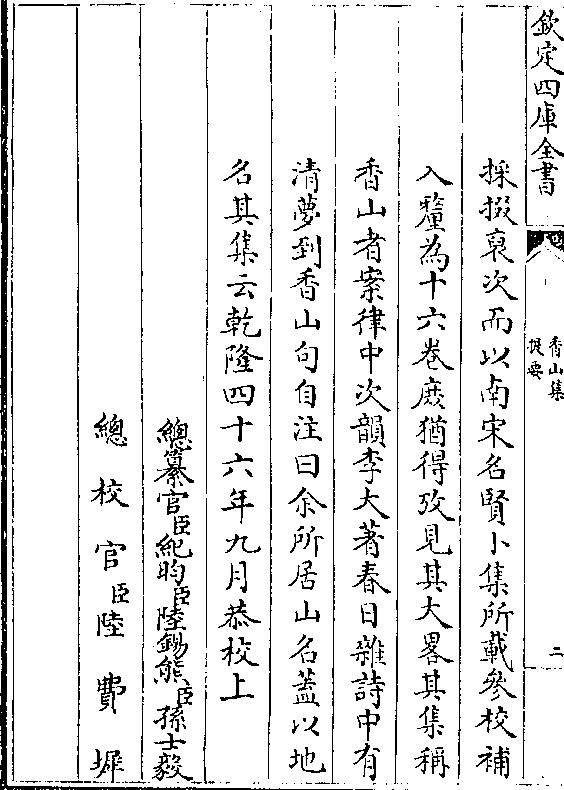 欽定四庫全書
香山集
提要
二
採掇裒次而以南宋名賢小集所載參校補
入釐為十六卷庶猶得攷見其大畧其集稱
香山者案律中次韻李大著春日雜詩中有
清夢到香山句自注曰余所居山名蓋以地
名其集云乾隆四十六年九月恭校上
總纂官臣紀昀臣陸錫熊臣孫士毅
總校官臣陸費墀